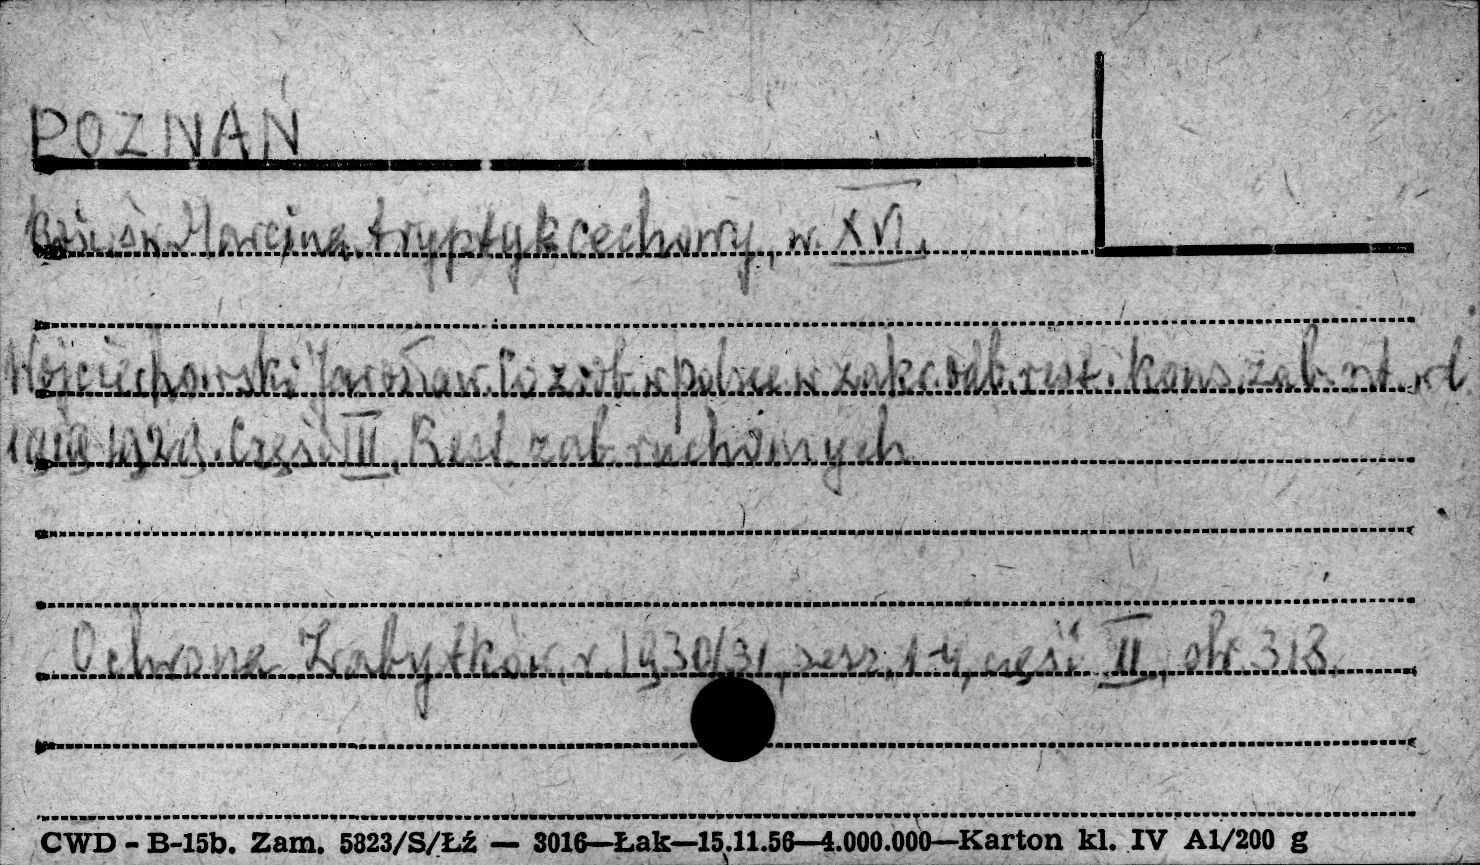 POZNAŃ
Kośc. św. Marcina, tryptyk cechowy, w. XVI.
Wojciechowski Jarosław. Co zrob. w Polsce w zakr. odb. rest. i kons. zab. szt. w l.
1919-1929. Część III. Rest. zab. ruchomych
Ochrona Zabytków, r. 1930/31, zesz. 1-4, część II, str. 313.
CWD - B-15b. Zam. 5823/S/Łź — 3016—Łak—15.11.56—4.000.000—Karton kl. IV A1/200 g